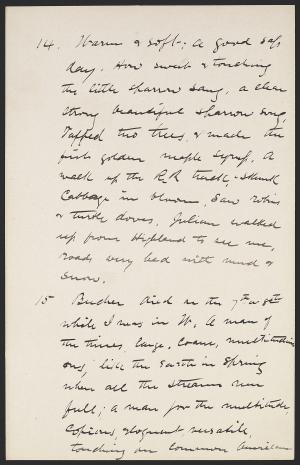 14. Warm & soft; a good sap
day. How sweet & touching
the little sparrow sang, a clear
strong beautiful sparrow song,
Tapped two trees, & made the
first golden maple syrup. A
walk up the R R track,- skunk
Cabbage in bloom, Saw robins
& turtle doves. Julian walked
up from Highland to see me,
roads very bad with mud &
snow.
15 Beecher died on the 7th or 8th
while I was in W. A man of
the times, large, coarse, multitudin-
ous, like the earth in Spring
when all the streams run
full; a man for the multitude,
Copious, eloquent, versatile,
touching our common American